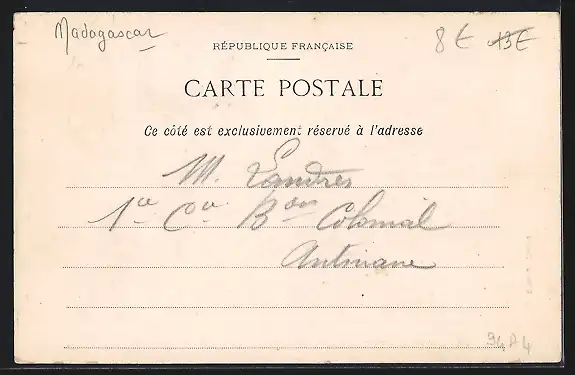 Madagascar
8€ 13€
RÉPUBLIQUE FRANÇAISE
CARTE POSTALE
Ce côté est exclusivement réservé à l'adresse
M. Landres
1re Cie Bon Colonial
94 P 4